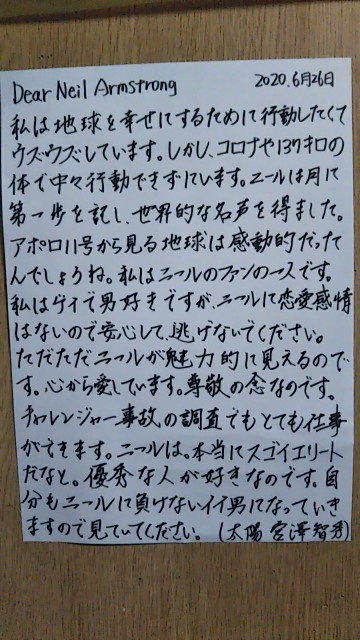 Dear Neil Armstrong 2020.6月26日
私は地球を幸せにするために行動したくて
ウズウズしています。しかし、コロナや137キロの
体で中々行動できずにいます。ニールは月に
第一歩を記し、世界的な名声を得ました。
アポロ11号から見る地球は感動的だった
んでしょうね。私はニールのファンの一人です。
私はゲイで男好きですが、ニールに恋愛感情
はないので安心して、逃げないでください。
ただただニールが魅力的に見えるので
す。心から愛しています。尊敬の念なのです。
チャレンジャー事故の調査でもとても仕事
ができます。ニールは。本当にスゴイエリート
だなと。優秀な人が好きなのです。自
分もニールに負けないイイ男になっていき
ますので見ていてください。(太陽 宮澤智秀)